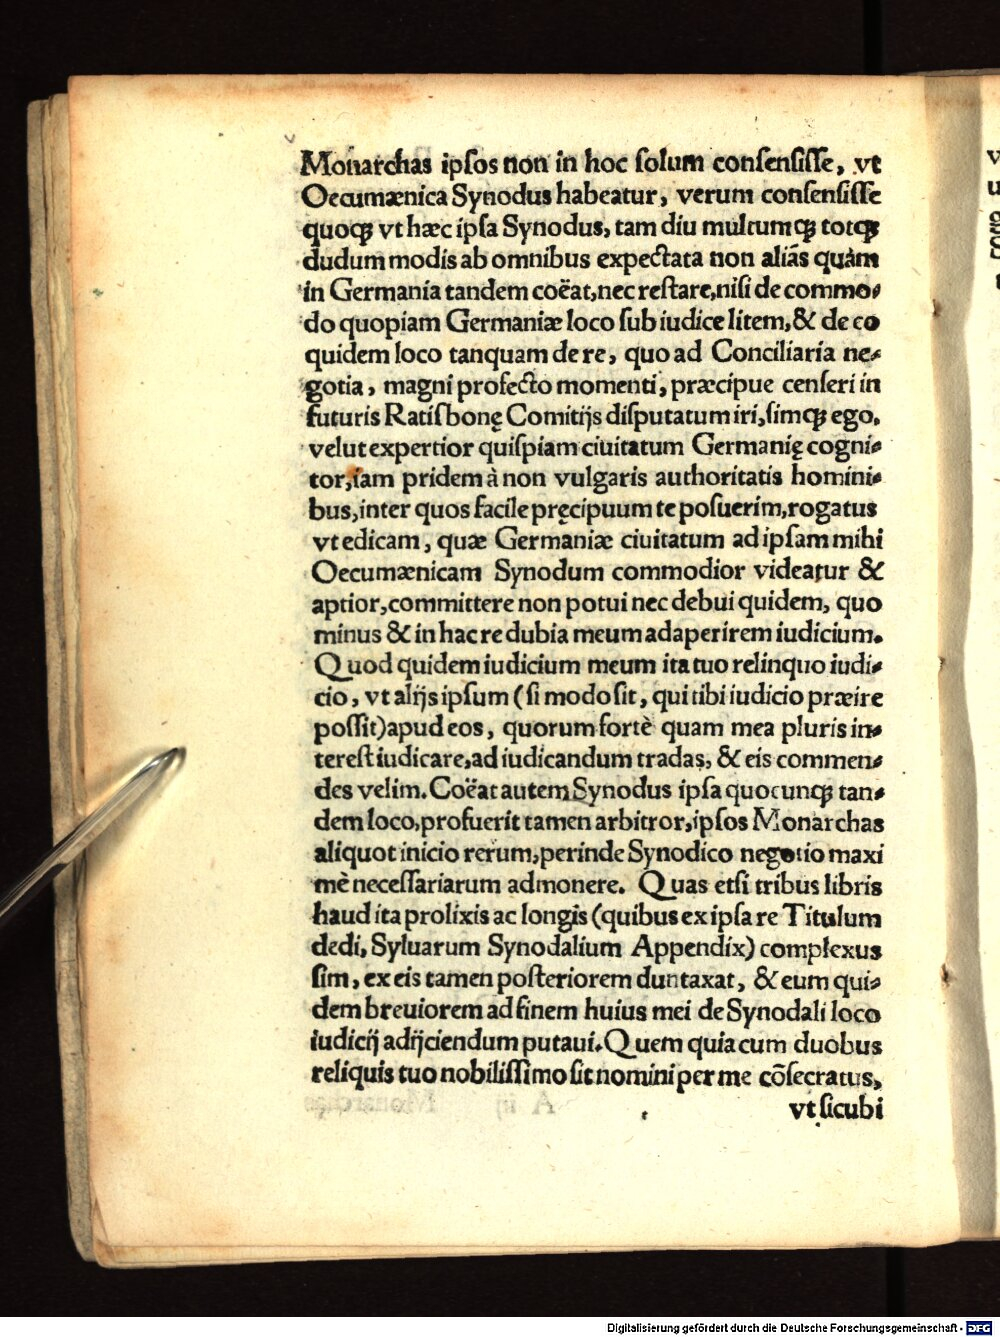 Monarchas ipſos non in hoc ſolum conſenſiſſe, vt
Oecumænica Synodus habeatur, verum conſenſiſſe
quoqꝫ vt hæc ipſa Synodus, tam diu multumqꝫ totqꝫ
dudum modis ab omnibus expectata non aliâs quàm
in Germania tandem coëat, nec reſtare, niſi de commo⸗
do quopiam Germaniæ loco ſub iudice litem, & de eo
quidem loco tanquam de re, quo ad Conciliaria ne⸗
gotia, magni profecto momenti, præcipue cenſeri in
futuris Ratiſbonę Comitijs diſputatum iri, ſimqꝫ ego,
velut expertior quiſpiam ciuitatum Germanię cogni⸗
tor, iam pridem à non vulgaris authoritatis homini⸗
bus, inter quos facile pręcipuum te poſuerim, rogatus
vt edicam, quæ Germaniæ ciuitatum ad ipſam mihi
Oecumænicam Synodum commodior videatur &
aptior, committere non potui nec debui quidem, quo
minus & in hac re dubia meum adaperirem iudicium.
Quod quidem iudicium meum ita tuo relinquo iudi⸗
cio, vt alijs ipſum (ſi modo ſit, qui tibi iudicio præire
poſſit) apud eos, quorum fortè quam mea pluris in⸗
tereſt iudicare, ad iudicandum tradas, & eis commen⸗
des velim. Coëat autem Synodus ipſa quocunqꝫ tan⸗
dem loco, profuerit tamen arbitror, ipſos Monarchas
aliquot inicio rerum, perinde Synodico negotio maxi
mè neceſſariarum admonere. Quas etſi tribus libris
haud ita prolixis ac longis (quibus ex ipſa re Titulum
dedi, Syluarum Synodalium Appendix) complexus
ſim, ex eis tamen poſteriorem duntaxat, & eum qui⸗
dem breuiorem ad finem huius mei de Synodali loco
iudicij adijciendum putaui. Quem quia cum duobus
reliquis tuo nobiliſſimo ſit nomini per me cõſecratus,
vt ſicubi
Digitalisierung gefördert durch die Deutsche Forschungsgemeinschaft - DFG